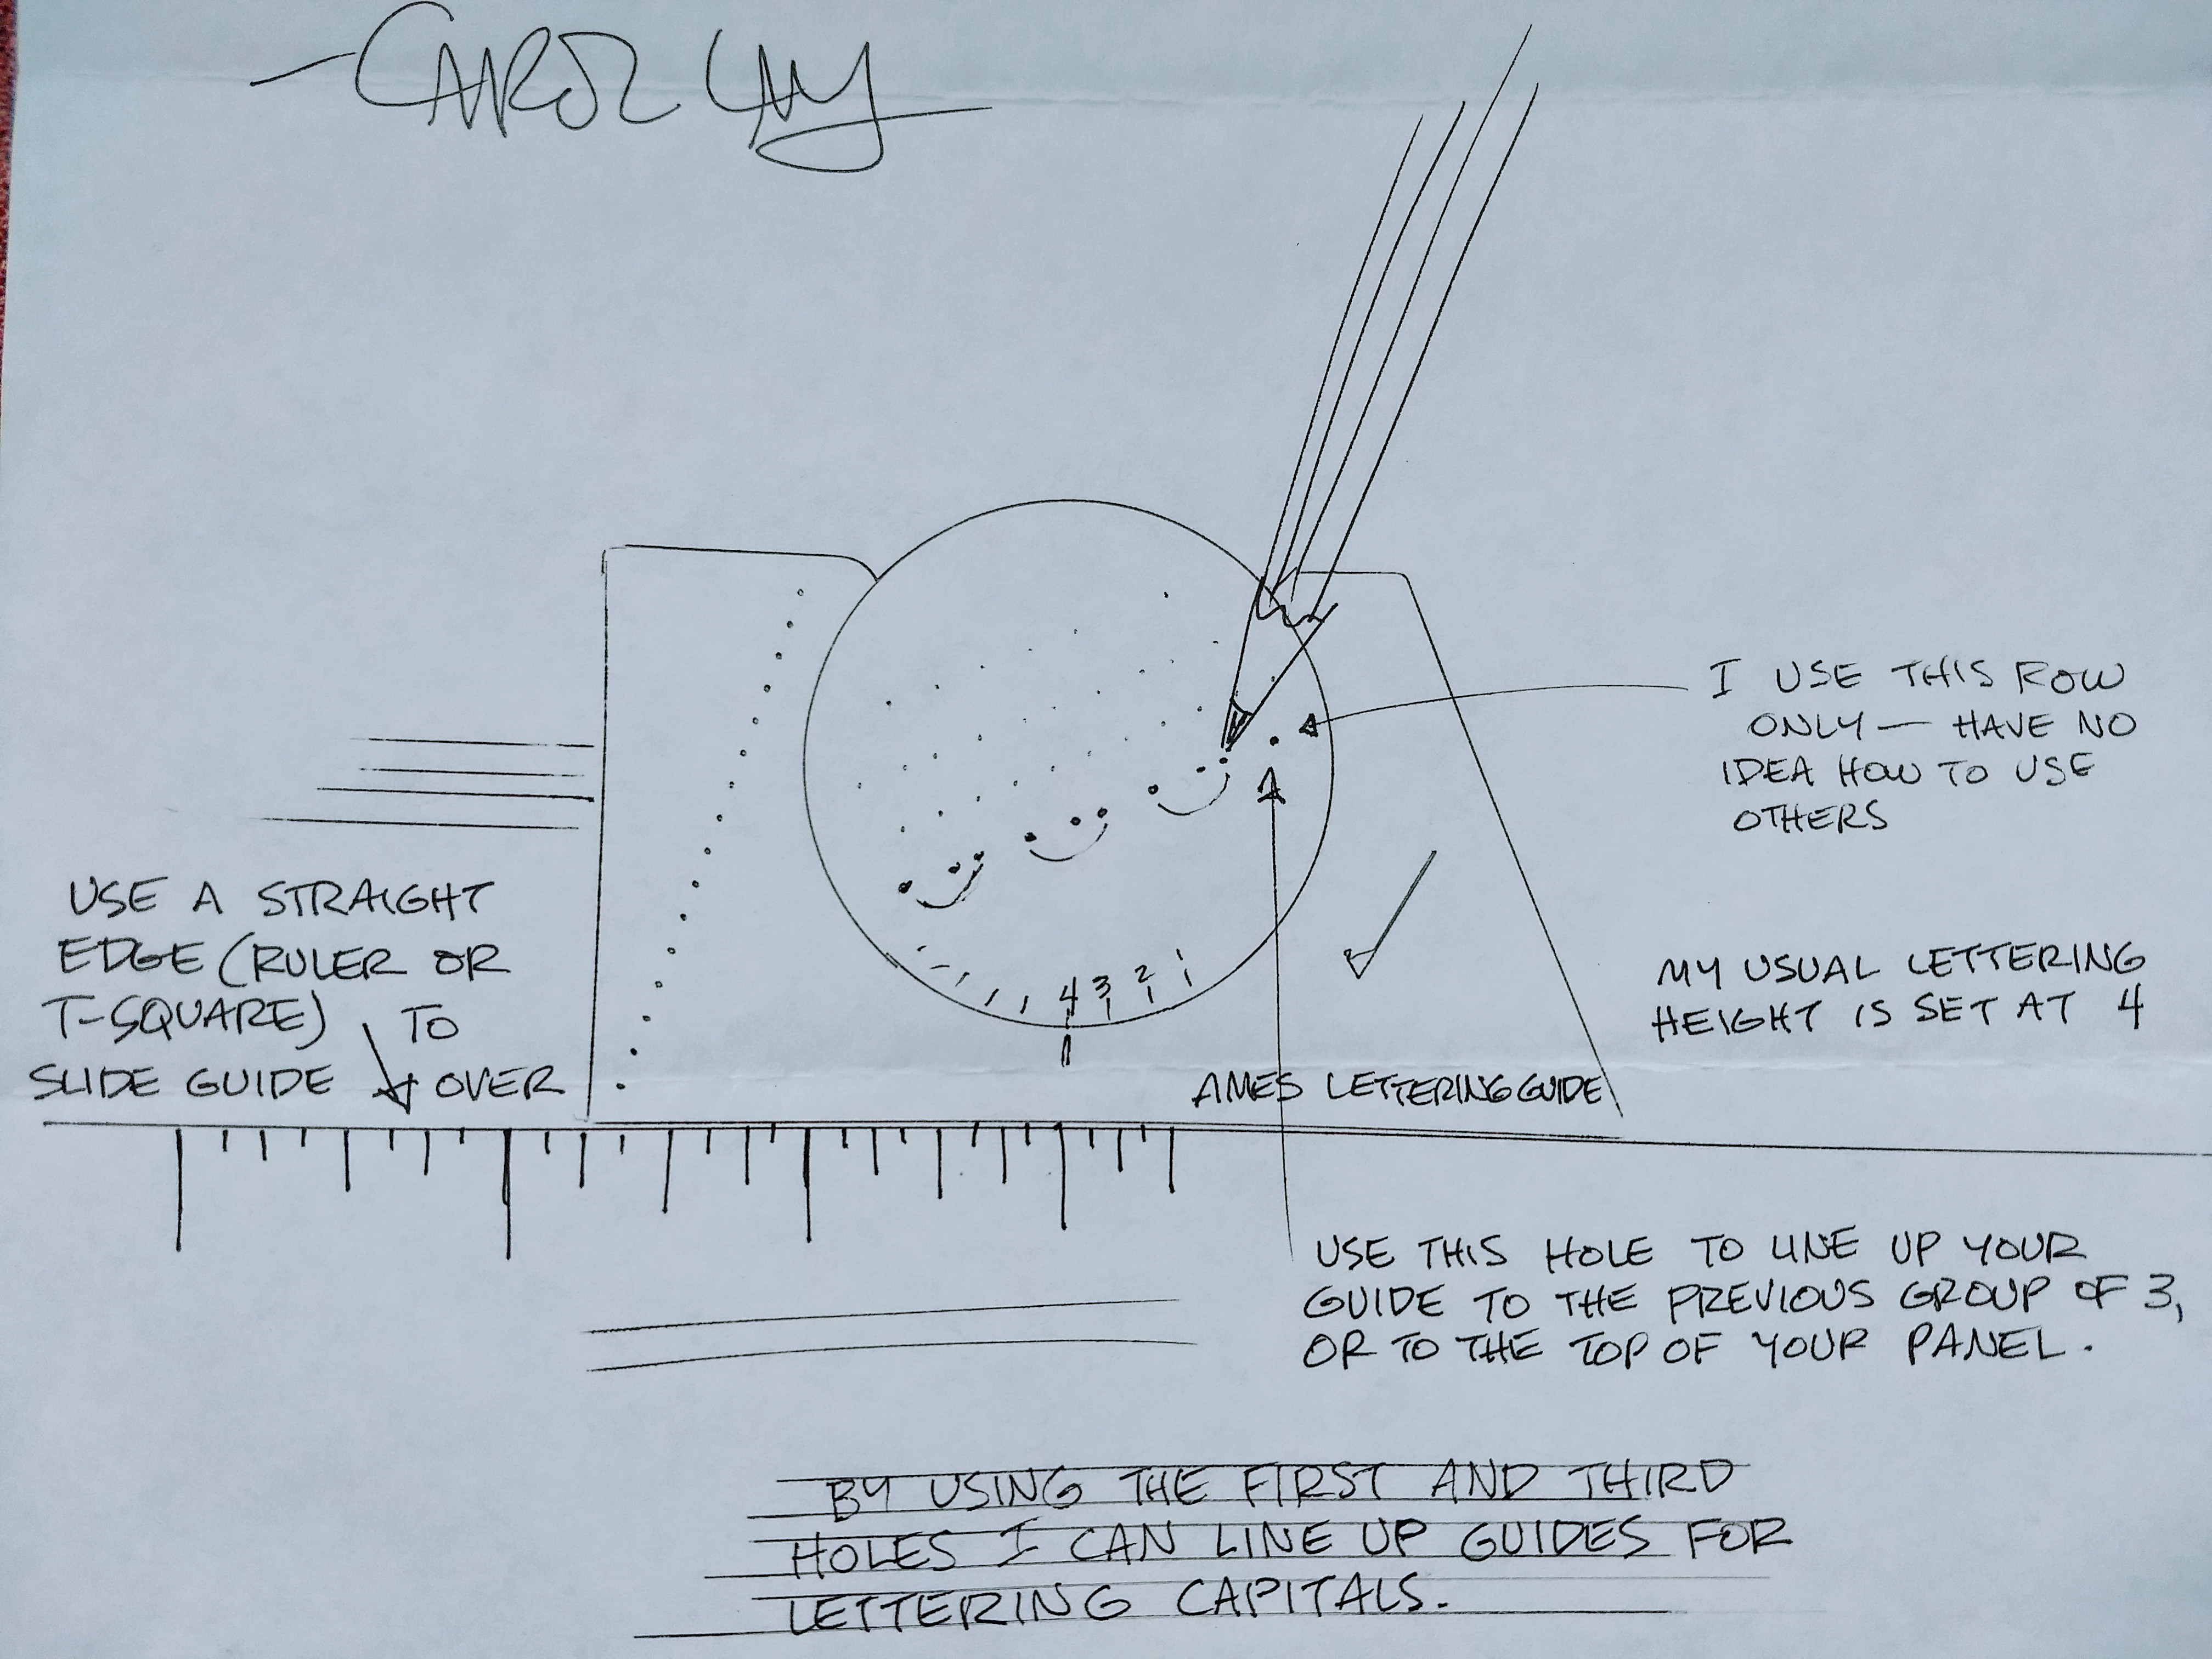 —CAROL LAY
I USE THIS ROW
ONLY — HAVE NO
IDEA HOW TO USE
OTHERS
USE A STRAIGHT
EDGE (RULER OR
T-SQUARE) TO
SLIDE GUIDE OVER
MY USUAL LETTERING
HEIGHT IS SET AT 4
4 3 2 1
AMES LETTERING GUIDE
USE THIS HOLE TO LINE UP YOUR
GUIDE TO THE PREVIOUS GROUP OF 3,
OR TO THE TOP OF YOUR PANEL.
BY USING THE FIRST AND THIRD
HOLES I CAN LINE UP GUIDES FOR
LETTERING CAPITALS.